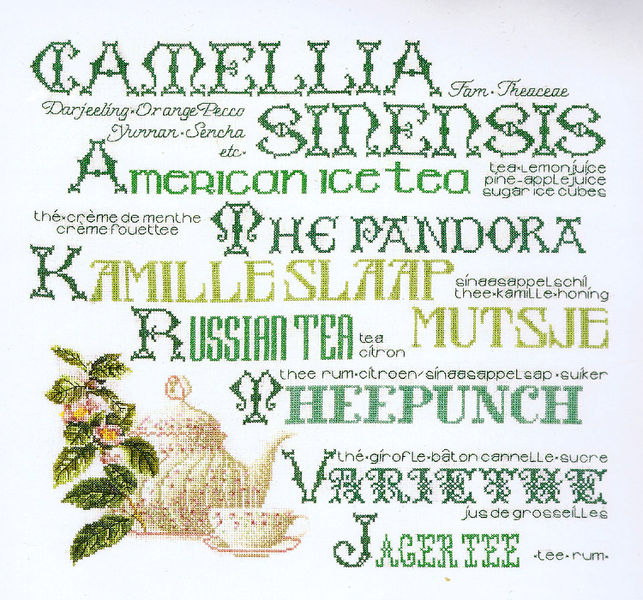 CAMELLIA Fam·Theaceae
Darjeeling·Orange Pecco
Yunnan·Sencha
etc· SINENSIS
American ice tea tea·lemonjuice
pine-applejuice
sugar ice cubes
thé·crème de menthe
crème fouettee THE PANDORA
KAMILLE SLAAP sinaasappelschil
thee·kamille·honing
RUSSIAN TEA tea
citron MUTSJE
thee rum·citroen/sinaasappelsap·suiker
THEEPUNCH
thé·girofle·bâton cannelle·sucre
VARIETHE
jus de groseilles
JAGERTEE ·tee·rum·